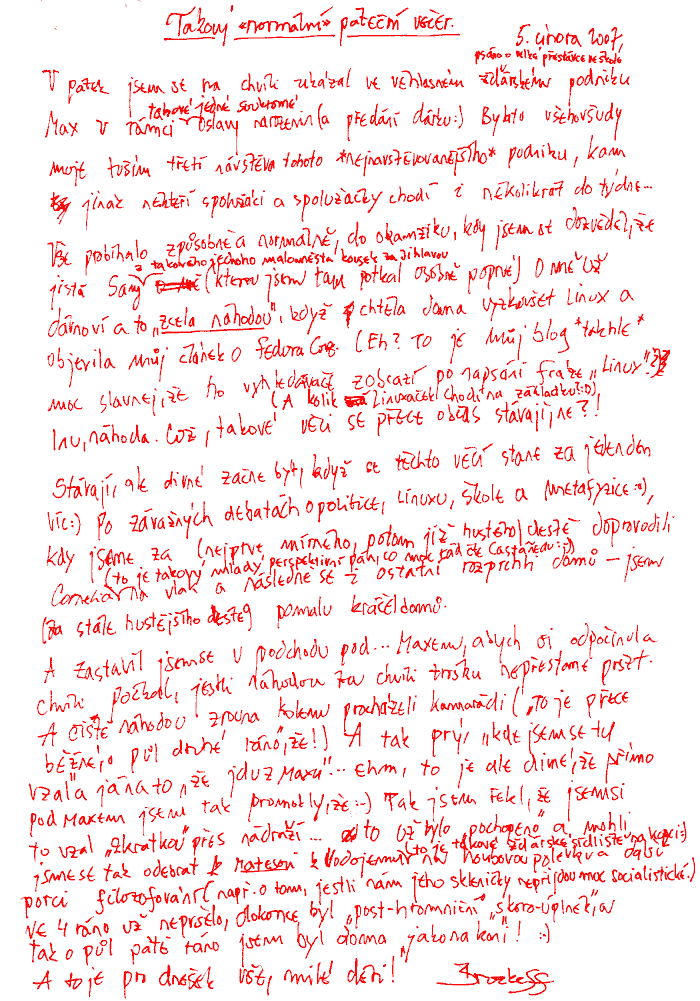 Takový «normální» páteční večer.
5. února 2007,
psáno o velké přestávce ve škole
V pátek jsem se na chvíli ukázal ve věhlasném žďárském podniku
takové jedné soukromé
Max v rámci oslavy narozenin (a předání dárku:) Bylo to všehovšudy
moje tuším třetí návštěva tohoto *nejnavštěvovanějšího* podniku, kam
jinak někteří spolužáci a spolužačky chodí i několikrát do týdne...
Vše probíhalo způsobně a normálně, do okamžiku, kdy jsem se dozvěděl, že
z takového jednoho maloměsta kousek za Jihlavou
jistá Sany (kterou jsem tam potkal osobně poprvé) o mně už
dávno ví a to „zcela náhodou", když chtěla doma vyzkoušet Linux a
objevila můj článek o Fedora Core. (Eh? To je můj blog *takhle*
moc slavnej, že ho vyhledávače zobrazí po napsání fráze „Linux"?
(A kolik Linuxaček chodí na základku:o)
Inu, náhoda. Což, takové věci se přece občas stávají, ne?!
Stávají, ale divné začne být, když se těchto věcí stane za jeden den
víc:) Po závažných debatách o politice, Linuxu, škole a metafyzice:o),
kdy jsme za (nejprve mírného, potom již hustého) deště doprovodili
(to je takový mladý perspektivní pán, co moc rád čte Castanedu:o)
Cornelia na vlak a následně se i ostatní rozprchli domů – jsem
(za stále hustějšího deště) pomalu kráčel domů.
A zastavil jsem se v podchodu pod... Maxem, abych si odpočinul a
chvíli počkal, jestli náhodou za chvíli trošku nepřestane pršet.
A čistě náhodou zrovna kolem procházeli kamarádi („To je přece
běžné, o půl druhé ráno", že!) A tak prý, „kde jsem se tu
vzal" a já na to, „že jdu z Maxu"... ehm, to je ale divné, že přímo
pod Maxem jsem tak promoklý, že:-) Tak jsem řekl, že jsem si
to vzal „zkratkou" přes nádraží... to už bylo „pochopeno" a mohli
(to je takové žďárské sídliště na kopci:)
jsme se tak odebrat k Vodojemu na houbovou polévku a další
porci filozofování (např. o tom, jestli nám jeho skleničky nepřijdou moc socialistické.)
Ve 4 ráno už nepršelo, dokonce byl „post-hromniční" „skoro-úplněk", a
tak o půl páté ráno jsem byl doma „jako na koni"! :-)
A to je pro dnešek vše, milé děti!